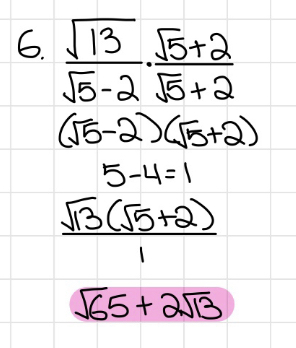 6. √13/(√5-2) · (√5+2)/(√5+2)
(√5-2)(√5+2)
5-4=1
√13(√5+2)/1
√65+2√13